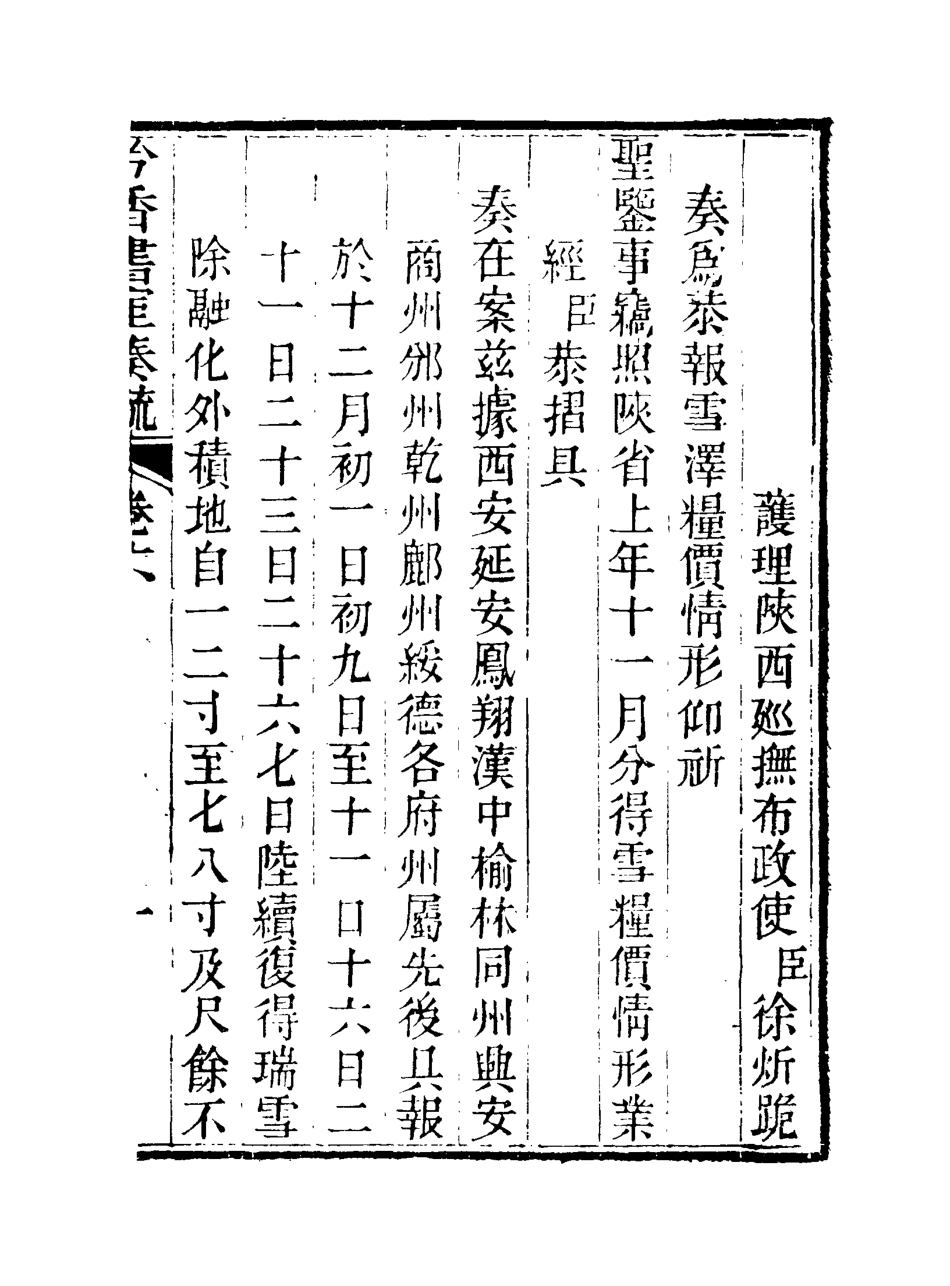 護理陝西廵撫布政使臣徐炘跪
奏爲恭報雪澤糧價情形仰祈
聖鑒事竊照陝省上年十一月分得雪糧價情形業
經臣恭摺具
奏在案茲據西安延安鳳翔漢中榆林同州興安
商州邠州乾州鄜州綏德各府州屬先後具報
於十二月初一日初九日至十一日十六日二
十一日二十三日二十六七日陸續復得瑞雪
除融化外積地自一二寸至七八寸及尺餘不
吟香書室奏疏 卷六 一